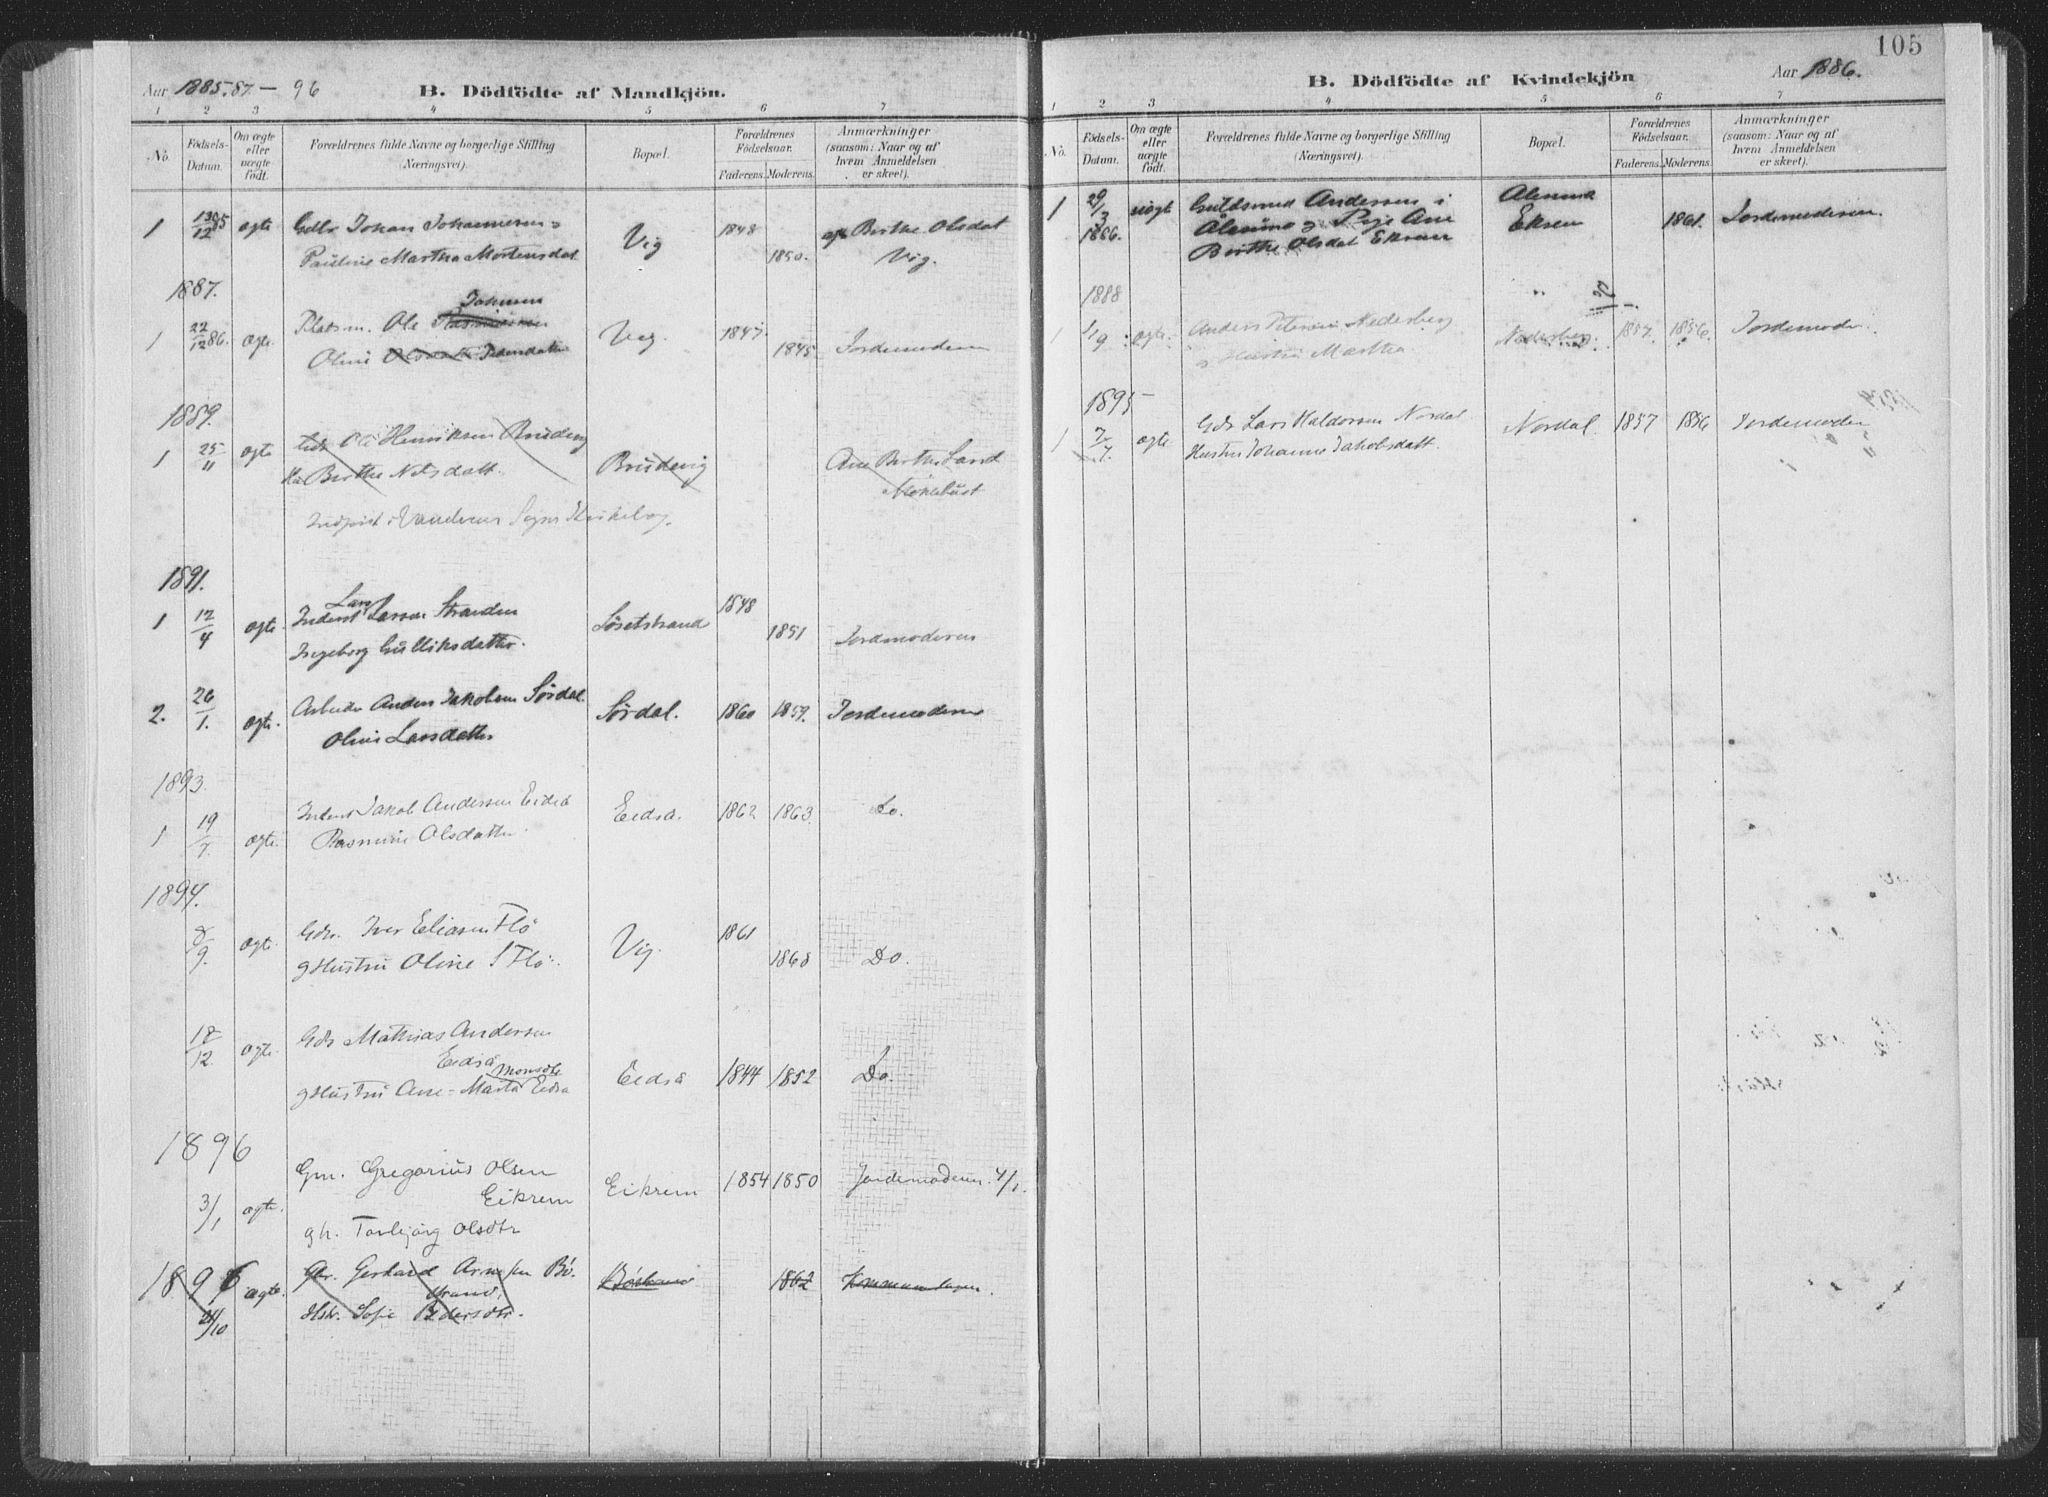 Aar 1885.87.- 96
B. Dödfödte af Mandkjön.
1 2 3 4 5 6 7
No. Födsels-Datum. Om ægte eller uægte födt. Forældrenes fulde Navne og borgerlige Stilling (Næringsvei). Bopæl. Forældrenes Födselsaar. Faderens. Moderens. Anmærkninger (saasom: Naar og af hvem Anmeldelsen er skeet).
1 ægte Johan Johannesen Vig 1848 Berthe Olsdat
Pauline Martha Mortensdat 1850. Vig.
1887.
Johnsen
1 22/12 86. ægte Pladsm. Ole Vig. 1847.
Oline Pedersdatter 1845 Jordemoderen
1889.
1 25/11 ægte Ole Henriksen Brudevig
Berthe Nilsdatt. Brudevig Ane Berthe Sand
Mokebust
Indført i Vanderens Sogns Kirkebog.
1891.
Lars
1 12/4 ægte. Inderst Larsen Stranden Søsetstrand 1848
Ingeborg Gulliksdatter. 1851 Jordmoderen
2. 26/1. ægte. Arbeider Anders Jakobsen Sørdal Sørdal. 1860 1859. Jordemoderen
Oline Larsdatter
1893.
1 19/7. ægte. Inderst Jakob Andersen Eidså Eidså. 1862 1863. Do.
Rasmine Olsdatter
1894.
8/9. ægte Gdr. Iver Eliasen Flø Vig. 1861
g Hustru Oline S Flø. 1868 Do.
18/12. ægte. Gdr Mathias Andersen
Eidså Monsdtr
g Hustru Ane-Marta Eidså Eidså 1844 1852 Do.
1896
3/1 ægte. Gm. Gregorius Olsen Eikrem 1854 1850 Jordemoderen. 4/1.
Eikrem
gh. Torbjørg Olsdtr
1896 ægte. Gbr. Gerhard Arnesen Bø- 1862
strand,
21/10 Hstr. Sofie Pedersdtr.
105
Aar 1886.
B. Dödfödte af Kvindekjön
1 2 3 4 5 6 7
No. Födsels-Datum. Om ægte eller uægte födt. Forældrenes fulde Navne og borgerlige Stilling (Næringsvei). Bopæl. Forældrenes Födselsaar. Faderens. Moderens. Anmærkninger (saasom: Naar og af hvem Anmeldelsen er skeet).
1 29/3 1886. uægte Guldsmed Andersen i Alesund
Ålesund og Pige Ane Eksem 1861. Jordemoderen.
Berthe Olsdat Eksem
1888
1 1/9 ægte. Anders Petersen Nedreberg Nedreberg. 1857. 1856. Jordemoder.
g Hustru Martha.
1895
1 7/7. ægte Gdr Lars Haldorsen Nordal Nordal. 1857 1856 Jordemoder
Hustru Johanne Jakobsdatt.